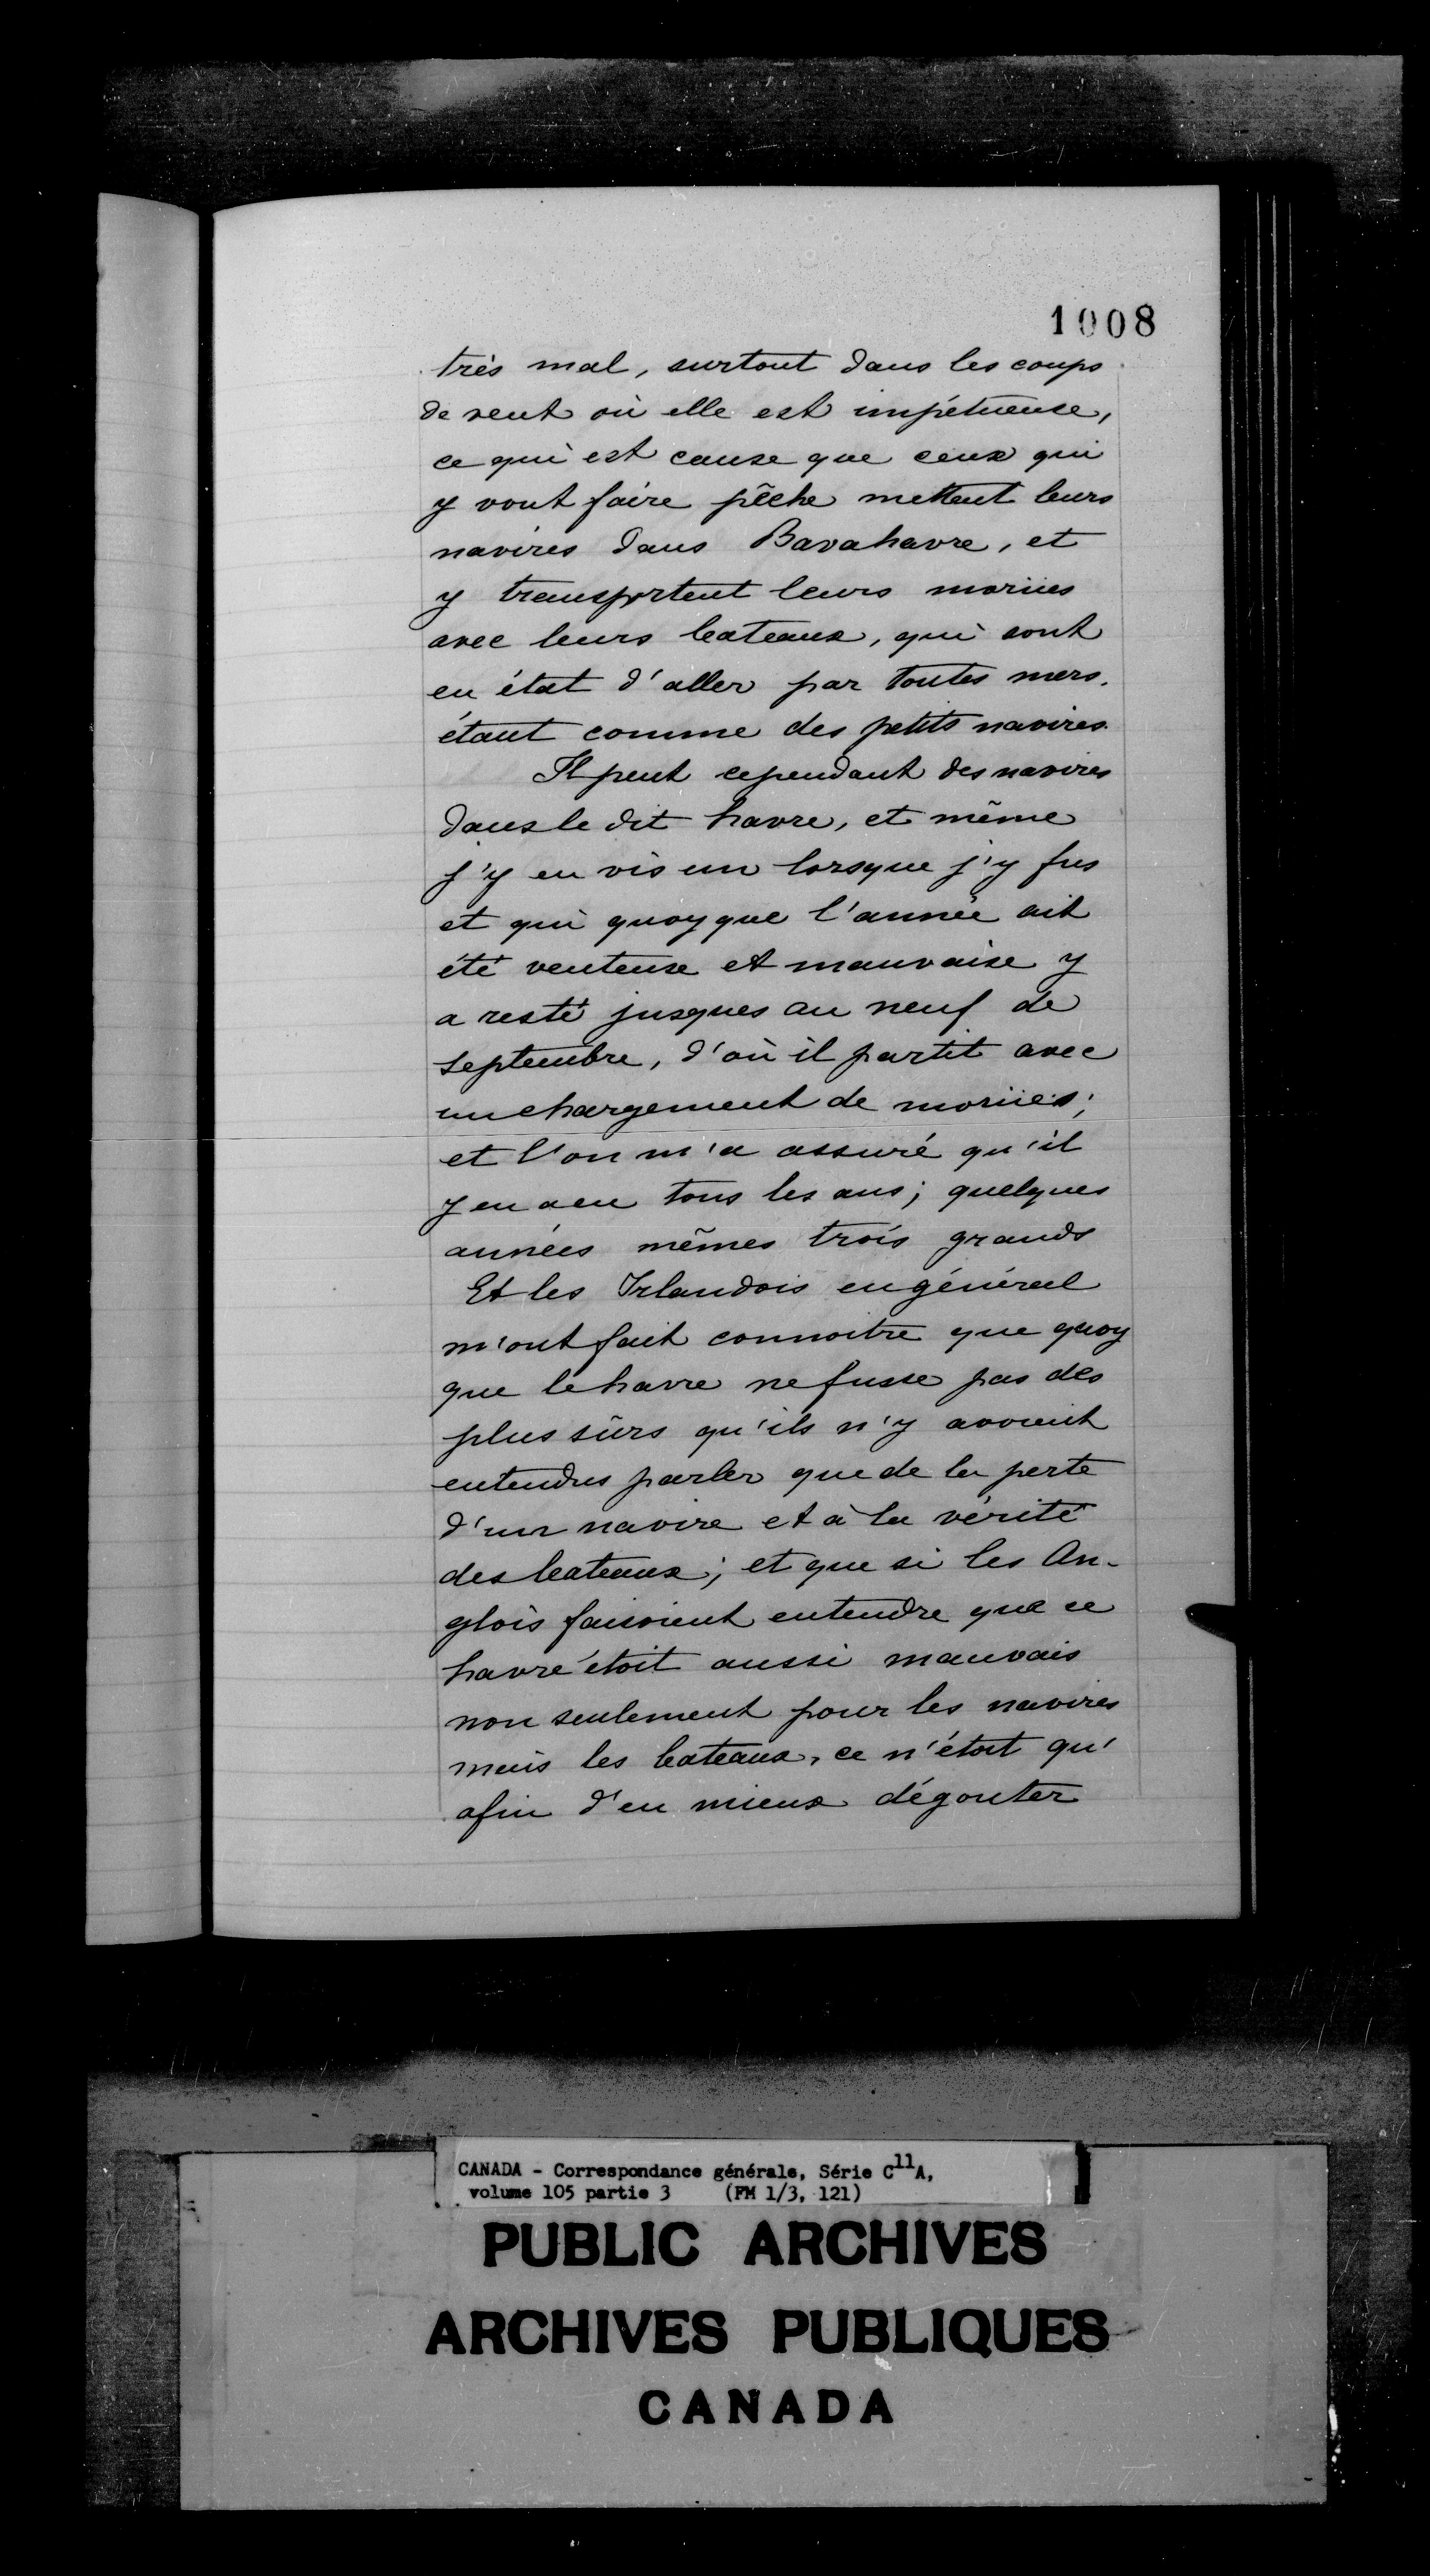 1008
très mal, surtout dans les coups
de vent où elle est impétueuse,
ce qui est cause que ceux qui
y vont faire pêche mettent leurs
navires dans Bavahavre, et
y transportent leurs moriies
avec leurs bateaux, qui sont
en état d'aller par toutes mers.
étant comme des petits navires.
Il peut cependant des navires
dans le dit havre, et même
j'y en vis un lorsque j'y fus
et qui quoyque l'année ait
été venteuse et mauvaise y
a resté jusques au neuf de
septembre, d'où il partit avec
un chargement de moriies;
et l'on m'a assuré qu'il
y en a eu tous les ans; quelques
années mêmes trois grands
Et les Irlandois en général
m'ont fait connoitre que quoy
que le havre ne fusse pas des
plus sûrs qu'ils n'y avoient
entendus parler que de la perte
d'un navire et à la vérité
des bateaux; et que si les An-
glois faisoient entendre que ce
havre étoit aussi mauvais
non seulement pour les navires
mais les bateaux, ce n'étoit qu'
afin d'en mieux dégouter
CANADA - Correspondance générale, Série C11A,
volume 105 partie 3 (FM 1/3, 121)
PUBLIC ARCHIVES
ARCHIVES PUBLIQUES
CANADA